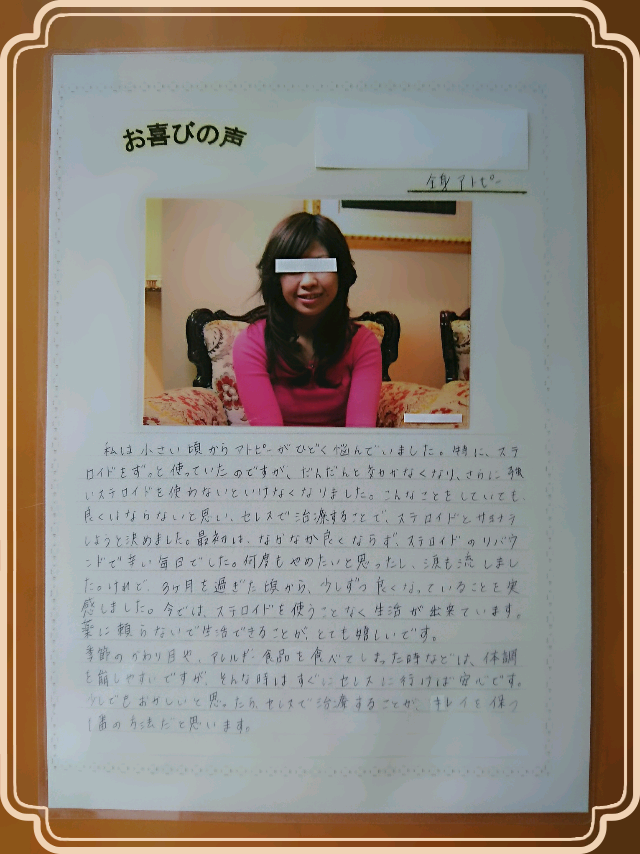 お喜びの声
全身アトピー
私は小さい頃からアトピーがひどく悩んでいました。特に、ステ
ロイドをずっと使っていたのですが、だんだんと効かなくなり、さらに強
いステロイドを使わないといけなくなりました。こんなことをしていても、
良くはならないと思い、セレスで治療することで、ステロイドとサヨナラ
しようと決めました。最初は、なかなか良くならず、ステロイドのリバウ
ンドで辛い毎日でした。何度もやめたいと思ったし、涙も流しまし
た。けれど、3ヶ月を過ぎた頃から、少しずつ良くなっていることを実
感しました。今では、ステロイドを使うことなく生活が出来ています。
薬に頼らないで生活できることが、とても嬉しいです。
季節のかわり目や、アレルギー食品を食べてしまった時などは、体調
を崩しやすいですが、そんな時はすぐにセレスに行けば安心です。
少しでもおかしいと思ったら、セレスで治療することが、キレイを保つ
1番の方法だと思います。